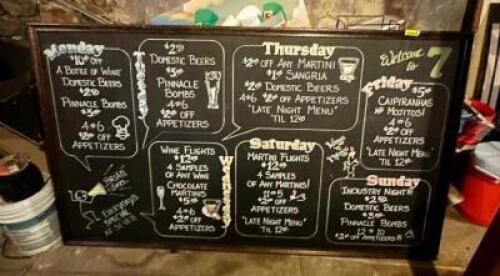 Monday
$10.00 OFF
A BOTTLE OF WINE
DOMESTIC BEERS
$2.50
PINNACLE BOMBS
$3.00
4 to 6
$2.00 OFF
APPETIZERS
Tuesday
$2.50
DOMESTIC BEERS
$3.00
PINNACLE
BOMBS
4 to 6
$2.00 OFF
APPETIZERS
Thursday
$2.00 OFF ANY MARTINI
$1.00 SANGRIA
$2.00 DOMESTIC BEERS
4 to 6 $2.00 OFF APPETIZERS
"LATE NIGHT MENU"
'TIL 12:00
Welcome
to 7
Friday
$5.00
CAIPIRANHAS
MOJITOS!
4 to 6
$2.00 OFF
APPETIZERS
"LATE NIGHT MENU"
'TIL 12:00
WINE FLIGHTS
$12.00
4 SAMPLES
OF ANY WINE
CHOCOLATE
MARTINIS
$5.00
4 to 6
$2.00 OFF
APPETIZERS
Wednesday
Saturday
MARTINI FLIGHTS
$12.00
4 SAMPLES
OF ANY MARTINIS!
$2.00 OFF
APPETIZERS
"LATE NIGHT MENU"
'TIL 12:00
Sunday
INDUSTRY NIGHT!
$2.50
DOMESTIC BEERS
$3.00
PINNACLE BOMBS
12 to 10
$2.00 OFF APPETIZERS